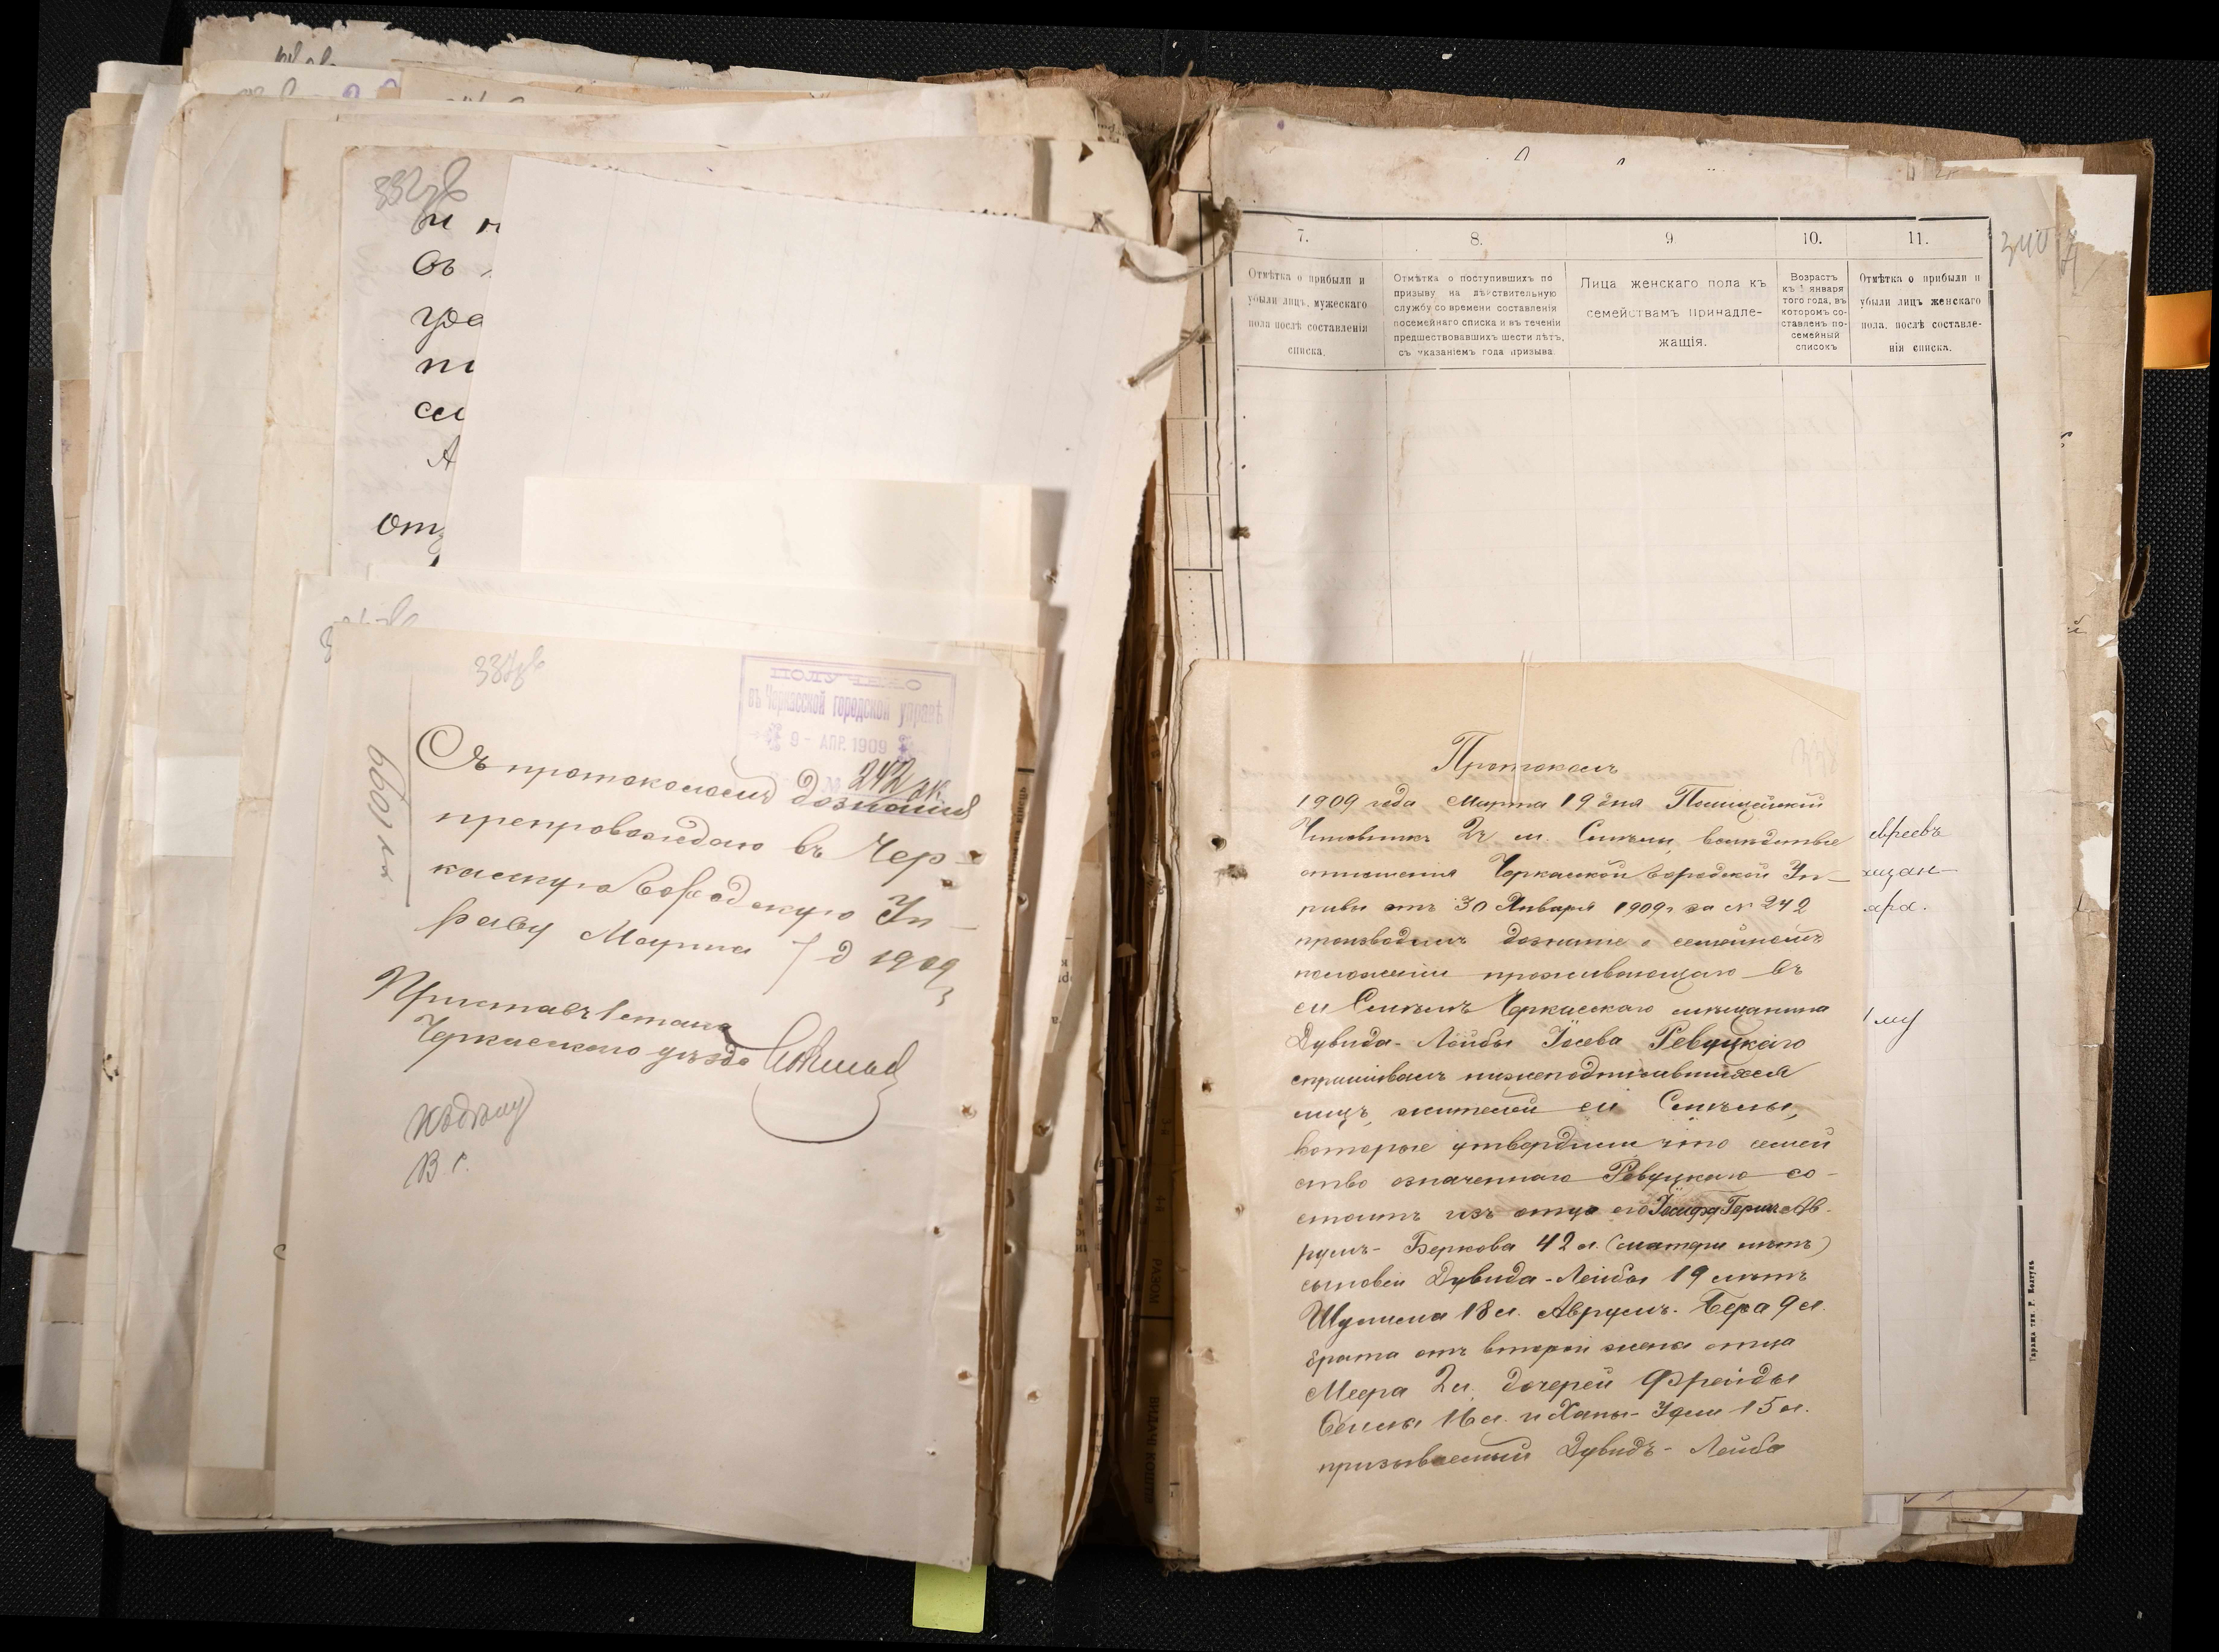 332 об
ПОЛУЧЕНО
въ Черкасской городской управѣ
9 - АПР. 1909
№ 242 ак.
Съ протоколомъ дознанія
препровождаю въ Чер-
касскую Городскую Уп-
раву Марта 7 д 1909 г
Приставъ 1 стана
Черкасскаго уѣзда
В. г.
7.
8.
9
10.
11.
Отмѣтка о прибыли и
убыли лицъ, мужескаго
пола послѣ составленія
списка.
Отмѣтка о поступившихъ по
призыву на дѣйствительную
службу со времени составленія
посемейнаго списка и въ теченіи
предшествовавшихъ шести лѣтъ,
съ указаніемъ года призыва
Лица женскаго пола къ
семействамъ принадле-
жащія.
Возрастъ
къ 1 января
того года, въ
которомъ со-
ставленъ по-
семейный
списокъ
Отмѣтка о прибыли и
убыли лицъ женскаго
пола, послѣ составле-
нія списка.
340
Протоколъ
1909 года Марта 19 дня Полицейскій
Чиновникъ 2й м. Смѣлы, вслѣдствіе
отношенія Черкасской Городской Уп-
равы отъ 30 Января 1909 г за № 242
производилъ дознаніе о семейномъ
положеніи проживающаго въ
м Смѣлѣ Черкасскаго мѣщанина
Дувида-Лейбы Іосева Ревуцкаго
спрашивалъ нижеподписавшихся
лицъ, жителей м Смѣлы,
которые утвердили что семей
ство означеннаго Ревуцкаго со-
стоитъ изъ отца его Іосифа Герша Ав-
румъ-Беркова 42 л. (матери нѣтъ)
сыновей Дувида-Лейбы 19 лѣтъ
Шулима 18 л. Аврумъ-Бера 9 л.
брата отъ второй жены отца
Меера 2 л. дочерей Фрейды
Бейлы 16 л. и Ханы- 15 л.
призываемый Дувидъ-Лейба
евреевъ